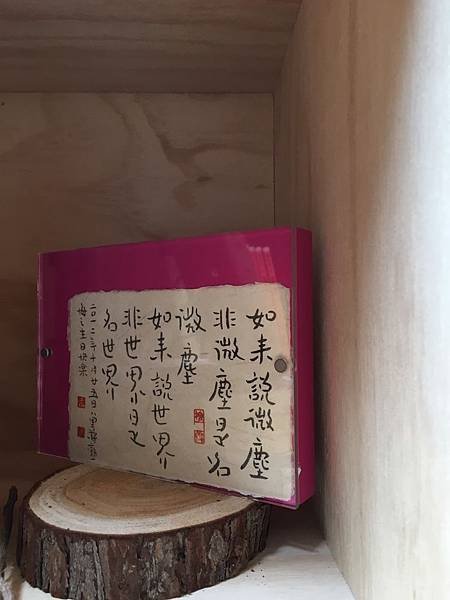 如来說微塵
非微塵是名
微塵
如来說世界
非世界是
名世界
二〇一二年十月廿五日
生日快樂